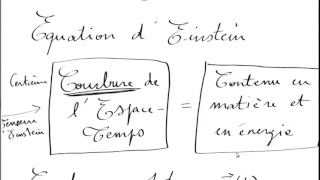 Équation d'Einstein
Certaine
Courbure de
l'Espace-
Temps
=
Contenu en
matière et
en énergie
Tenseur
d'Einstein